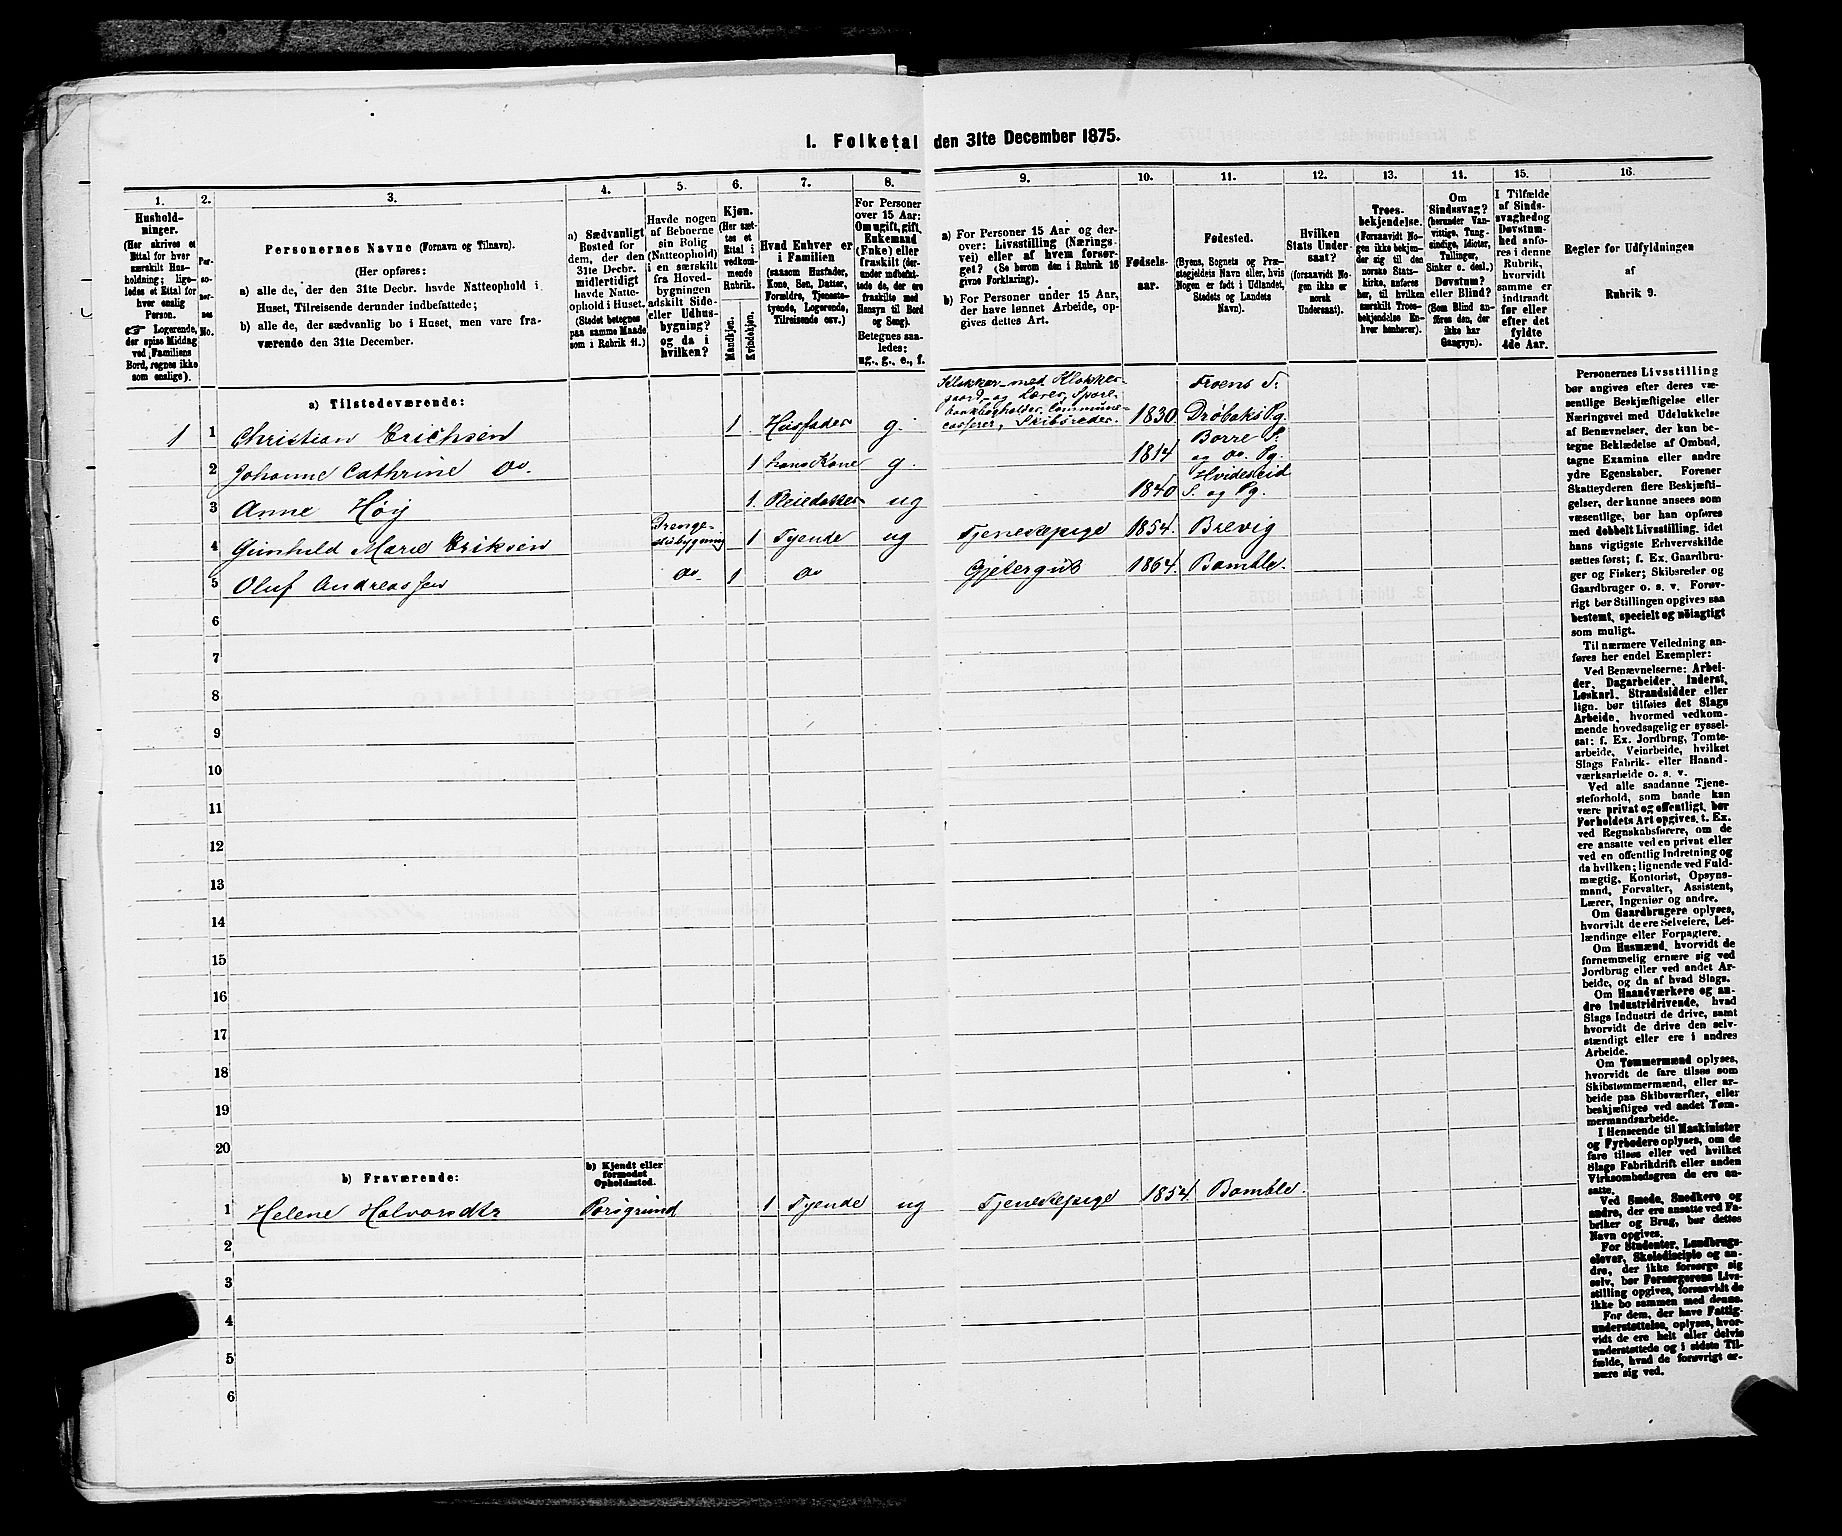 I. Folketal den 31te December 1875.
1. 2. 3. 4. 5. 6. 7. 8. 9. 10. 11. 12. 13. 14. 15. 16.
Hushold-
ninger.
(Her skrives et
Ettal for hver
særskilt Hus-
holdning; lige-
ledes et Ettal for
hver enslig
Person.
☞ Logerende,
der spise Middag
ved Familiens
Bord, regnes ikke
som enslige).
Per-
so-
ner-
nes
No.
Personernes Navne (Fornavn og Tilnavn).
(Her opføres:
a) alle de, der den 31te Decbr. havde Natteophold i
Huset, Tilreisende derunder indbefattede;
b) alle de, der sædvanlig bo i Huset, men vare fra-
værende den 31te December.
a) Sædvanligt
Bosted for
dem, der den
31te Decbr.
midlertidigt
havde Natte-
ophold i Huset.
(Stedet betegnes
paa samme Maade
som i Rubrik 11.)
Havde nogen
af Beboerne
sin Bolig
(Natteophold)
i en særskilt
fra Hoved-
bygningen
adskilt Side-
eller Udhus-
bygning?
og da i
hvilken?
Kjøn.
(Her sæt-
tes et
Ettal i
vedkom-
mende
Rubrik.
Mandkjøn.
Kvindekjøn.
Hvad Enhver er
i Familien
(saasom Husfader,
Kone, Søn, Datter,
Forældre, Tjeneste-
tyende, Logerende,
Tilreisende osv.)
For Personer
over 15 Aar:
Om ugift, gift,
Enkemand
(Enke) eller
fraskilt (der-
under indbefat-
tede de, der ere
fraskilte med
Hensyn til Bord
og Seng).
Betegnes saa-
ledes:
ug., g., e., f.
a) For Personer 15 Aar og der-
over: Livsstilling (Nærings-
vei) eller af hvem forsør-
get? (Se herom den i Rubrik 16
givne Forklaring).
b) For Personer under 15 Aar,
der have lønnet Arbeide, op-
gives dettes Art.
Fødsels-
aar.
Fødested.
(Byens, Sognets og Præ-
stegjeldets Navn eller, hvis
Nogen er født i Udlandet,
Stedets og Landets
Navn).
Hvilken
Stats Under-
saat?
(forsaavidt No-
gen ikke er
norsk
Undersaat).
Troes-
bekjendelse.
(Forsaavidt No-
gen ikke bekjen-
der sig til den
norske Stats-
kirke, anføres
her, til hvilken
særskilt Troes-
bekjendelse En-
hver henhører).
Om
Sindssvag?
(herunder Van-
vittige, Tung-
sindige, Idioter,
Tullinger,
Sinker o. desl.)
Døvstum?
eller Blind?
(Som Blind an-
føres den, der
ikke har
Gangsyn).
I Tilfælde
af Sinds-
svaghed og
Døvstum-
hed anfø-
res i denne
Rubrik,
hvorvidt
samme er
indtraadt
før eller
efter det
fyldte
4de Aar.
Regler for Udfyldningen
af
Rubrik 9.
a) Tilstedeværende:
1 1 Christian Erichsen 1 Husfader g. Klokker med Klokker-
gaard og Lærer, Spare-
bankbogholder, Commune-
casserer, Skibsreder. 1830 Froens S.
Drøbaks Pg.
2 Johanne Cathrine Do. 1 hans Kone g. 1814 Borre S.
og Do. Pg.
3 Anne Høy 1. Pleiedatter ug 1840 Hvideseid
S. og Pg.
4 Gunhild Marie Eriksen Drenge-
stubygning 1 Tyende ug Tjenestepige 1854. Brevig
5 Oluf Andreassen Do. 1 Do Gjetergut 1864. Bamble.
6
7
8
9
10
11
12
13
14
15
16
17
18
19
20
b) Fraværende:
b) Kjendt eller
formodet
Opholdssted.
1 Helene Halvorsdtr Porsgrund 1 Tyende ug Tjenestepige 1854. Bamble.
2
3
4
5
6
Personernes Livsstilling
bør angives efter deres væ-
sentlige Beskjæftigelse eller
Næringsvei med Udelukkelse
af Benævnelser, der kun be-
tegne Beklædelse af Ombud,
tagne Examina eller andre
ydre Egenskaber. Forener
Skatteyderen flere Beskjæfti-
gelser, der kunne ansees som
væsentlige, bør han opføres
med dobbelt Livsstilling, idet
hans vigtigste Erhvervskilde
sættes først; f. Ex. Gaardbru-
ger og Fisker; Skibsreder og
Gaardbruger o. s. v. Forøv-
rigt bør Stillingen opgives saa
bestemt, specielt og nöiagtigt
som muligt.
Til nærmere Veiledning an-
føres her endel Exempler:
Ved Benævnelserne: Arbei-
der, Dagarbeider, Inderst,
Løskarl, Strandsidder eller
lign. bør tilføies det Slags
Arbeide, hvormed vedkom-
mende hovedsagelig er syssel-
sat: f. Ex. Jordbrug, Tomte-
arbeide, Veiarbeide, hvilket
Slags Fabrik- eller Haand-
værksarbeide o. s. v.
Ved alle saadanne Tjene-
steforhold, som baade kan
være privat og offentligt, bør
Forholdets Art opgives, t. Ex.
ved Regnskabsførere, om de
ere ansatte ved en privat eller
ved en offentlig Indretning og
da hvilken; lignende ved Fuld-
mægtig, Kontorist, Opsyns-
mand, Forvalter, Assistent,
Lærer, Ingeniør og andre.
Om Gaardbrugere oplyses,
hvorvidt de ere Selveiere, Lei-
lændinge eller Forpagtere.
Om Husmænd, hvorvidt de
fornemmelig ernære sig ved
Jordbrug eller ved andet Ar-
beide, og da af hvad Slags.
Om Haandværkere og an-
dre Industridrivende, hvad
Slags Industri de drive, samt
hvorvidt de drive den selv-
stændigt eller ere i andres
Arbeide.
Om Tømmermænd oplyses,
hvorvidt de fare tilsøs som
Skibstømmermænd, eller ar-
beide paa Skibsværfter, eller
beskjæftiges ved andet Tøm-
mermandsarbeide.
I Henseende til Maskinister
og Fyrbødere oplyses, om de
fare tilsøs eller ved hvilket
Slags Fabrikdrift eller anden
Virksomhedsgren de ere an-
satte.
Ved Smede, Snedkere og
andre, der ere ansatte ved Fa-
briker og Brug, bør dettes
Navn opgives.
For Studenter, Landbrugs-
elever, Skoledisciple og an-
dre, der ikke forsørge sig
selv, bør Forsørgerens Livs-
stilling opgives, forsaavidt de
ikke bo sammen med denne.
For dem, der have Fattig-
understøttelse, oplyses, hvor-
vidt de ere helt eller delvis
understøttede og i sidste Til-
fælde, hvad de forøvrigt er-
nære sig ved.